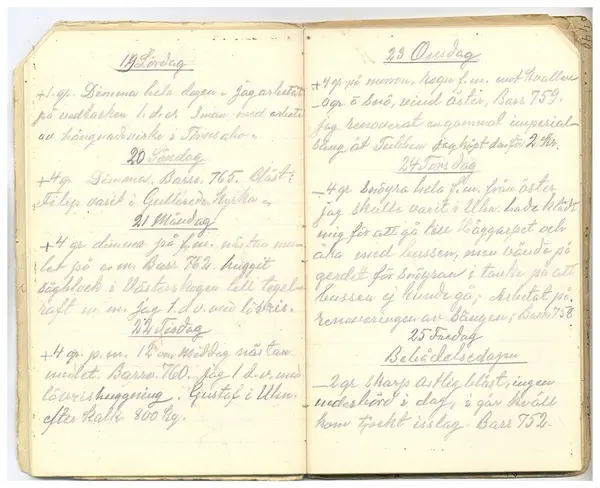 19 Lördag
+1 gr. Dimma hela dagen. jag arbetat
på vedbacken 1. d.v. 3 man med arbete
av hängnadsvirke i
20 Söndag
+4 gr. Dimma. Barro. 765. Blåst:
Filip varit i Gullereds Kyrka.
21 Måndag
+4 gr dimma på f.m. nästan mu-
let på e.m. Barr 762. huggit
sågblock i Västerskogen till tegel-
raft m. m. jag 1 d.v. med lövris.
22 Tisdag
+4 gr. p.m. 12 om Middag nästan
mulet. Barro. 760. jag 1 d.v. med
lövrishuggning. Gustaf i Ulhn.
efter Kalk 800 Kg.
23 Onsdag
+4 gr på moron, regn f.m. mot kvällen
0 gr o Snö, vind öster, Barr 759.
jag renoverat en gammal imperial-
säng åt Tulldin jag köpt den för 2 Kr.
24 Torsdag
-4 gr. Snöyra hela f.m. från öster
jag skulle varit i Ulhn. hade klädt
mig för att gå till Häggarpet och
åka med bussen, men vände på
gerdet för snöyran i tanke på att
bussen ej kunde gå; Arbetat på
renoveringen av sängen; Barr 758
25 Fredag
Bebådelsedagen
-2 gr skarp ostlig blåst, ingen
nederbörd i dag, i går kväll
kom tjockt isslag. Barr 752.